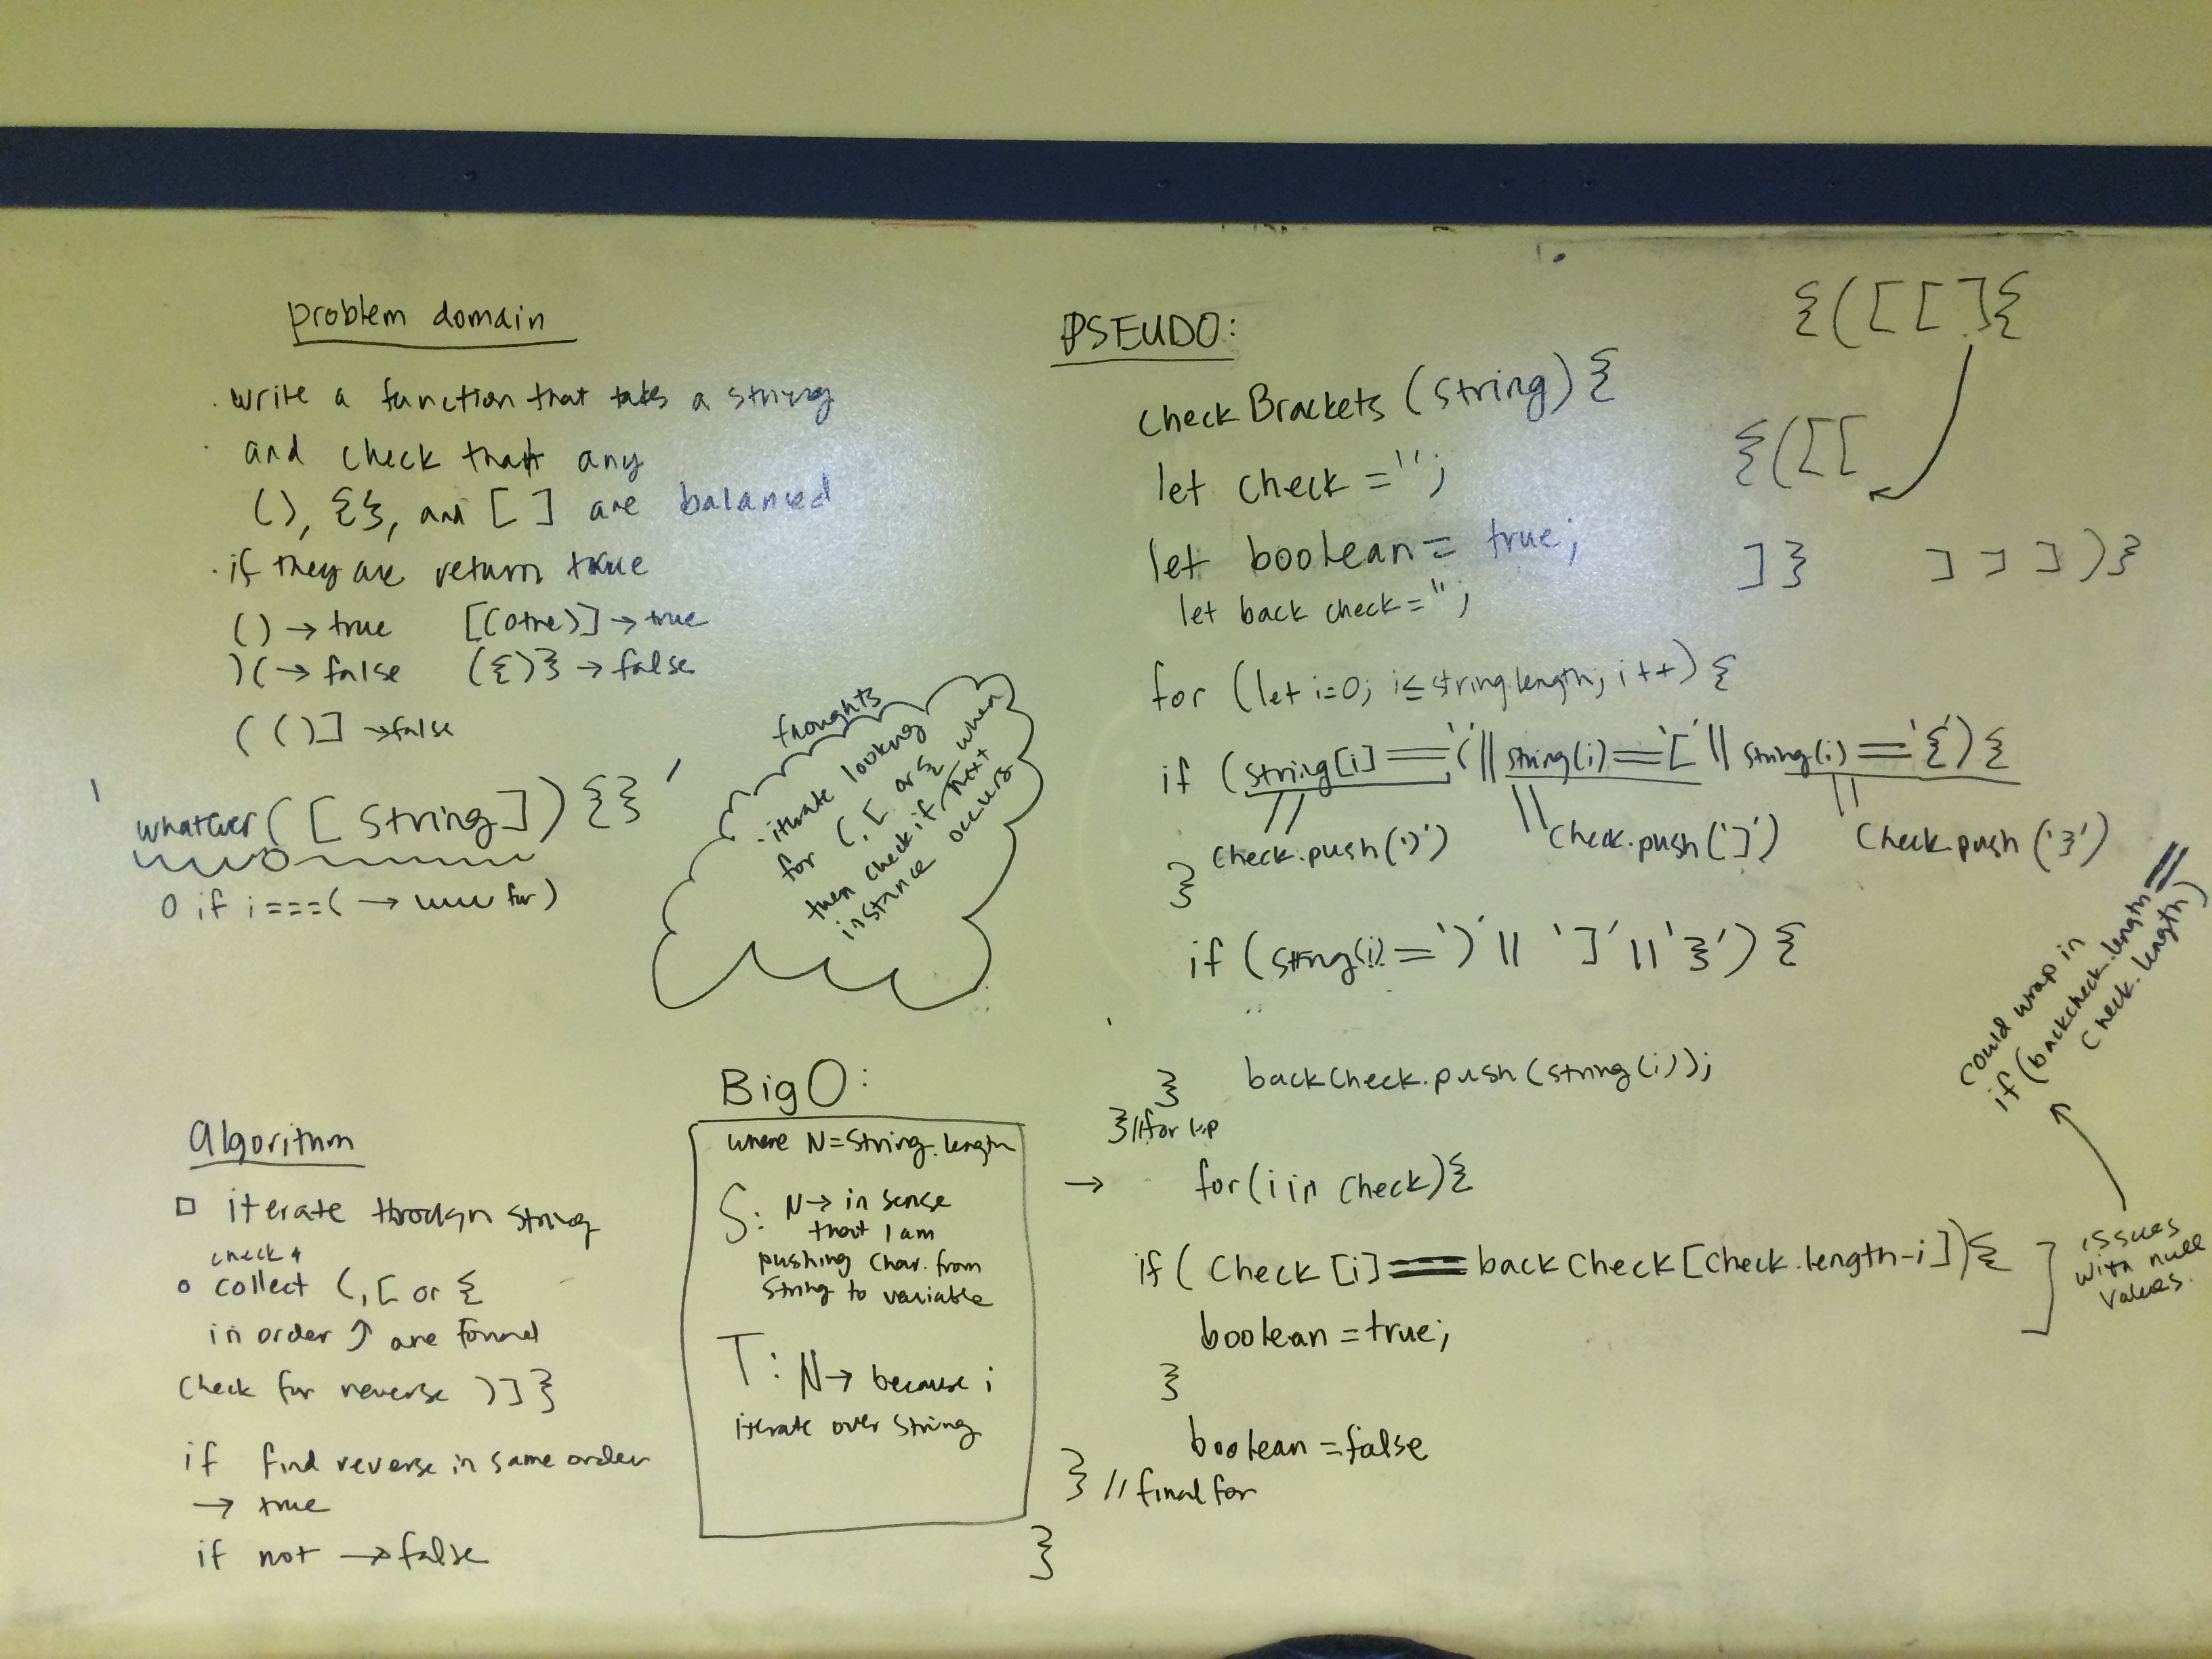 problem domain
. write a function that takes a string
. and check that any
(), {}, and [ ] are balanced
. if they are return true
() → true [(otre)] → true
)( → false ({)} → false
( ()] → false
' whatever ( [ string ] ) {} '
O if i===( → for )
thoughts
. iterate looking
for (, [ or { when
then check if next
instance occurs
Algorithm
□ iterate through string
check &
o collect (, [ or {
in order ↑ are found
check for reverse ) ] }
if find reverse in same order
→ true
if not → false
Big O:
where N = String.length
S: N → in sense
that I am
pushing char. from
string to variable
T: N → because i
iterate over string
PSEUDO:
check Brackets (string) {
let check = '';
let boolean = true;
let back check = '';
for (let i=0; i≤string.length; i++) {
if (string[i] == '(' || string(i) == '[' || string(i) == '{') {
check.push(')') check.push(']') check.push('}')
}
if (string(i) = ')' || ']' || '}') {
} backcheck.push(string(i));
} //for lp
→ for (i in check) {
if ( check [i] === back check [check.length-i]) {
boolean = true;
}
boolean = false
} // final for
}
{([[]{
{([[
]} ]]])}
could wrap in
if (backcheck.length ==
check.length)
issues
with null
values.